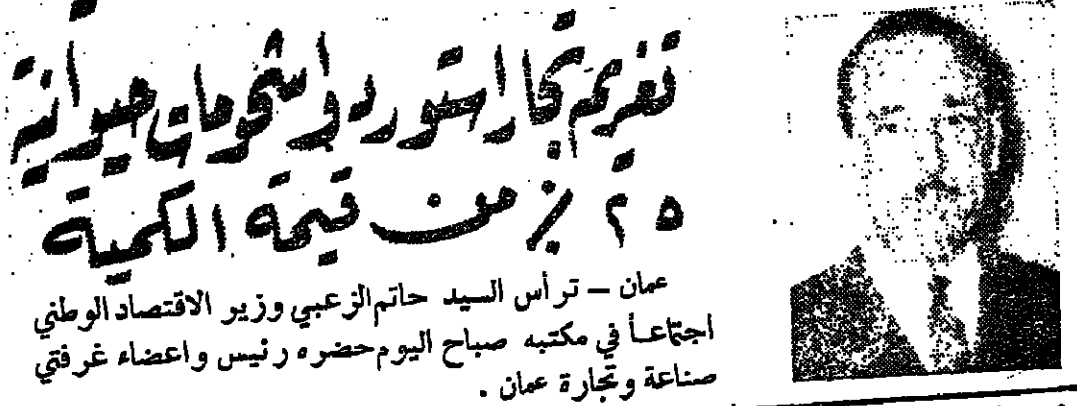 تغريم تجار استوردوا شحومات حيوانية
٢٥ ٪ من قيمة الكمية
عمان – ترأس السيد حاتم الزعبي وزير الاقتصاد الوطني
اجتماعـاً في مكتبه صباح اليوم حضره رئيس واعضاء غرفتي
صناعة وتجارة عمان .